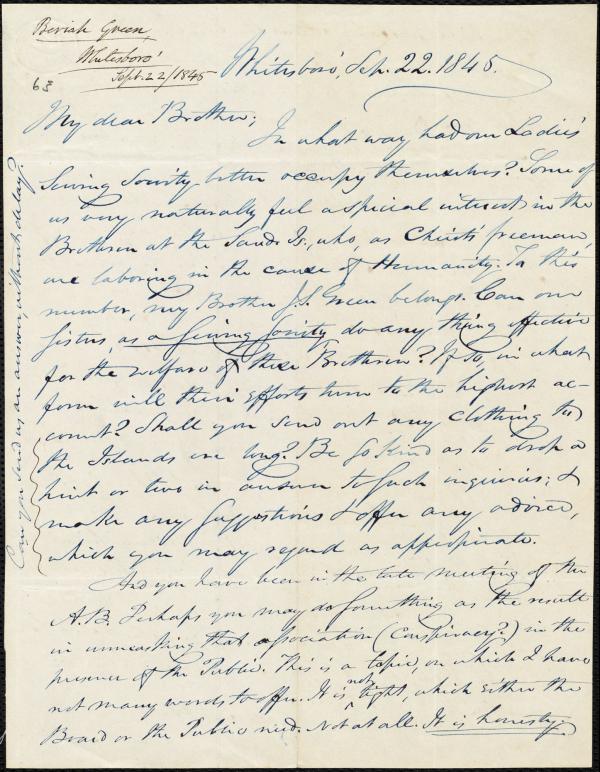 Beriah Green,
Whitesboro'
Sept. 22/1845
63
Whitesboro', Sep. 22. 1845.
My dear Brother;
In what way had our Ladies
Sewing Society better occupy themselves? Some of
us very naturally feel a special interest in the
Brethren at the Sands Is., who, as Christ's freemen,
are laboring in the cause of Humanity. To this
number, my Brother J.S. Green belongs. Can our
Sisters, as a Sewing Society, do any thing effective
for the welfare of these Brethren? If so, in what
form will their efforts turn to the highest ac-
count? Shall you send out any clothing to
the Islands ere long? Be so kind as to drop a
hint or two in answer to such inquiries; &
make any suggestions & offer any advice,
which you may regard as appropriate.
And you have been in the late meeting of the
A.B. Perhaps you may do something as the result
in unmasking that association (conspiracy?) in the
presence of the Public. This is a topic, on which I have
not many words to offer. It is not light, which either the
Board or the Public need. Not at all. It is honesty.
Can you send us an answer, without delay?